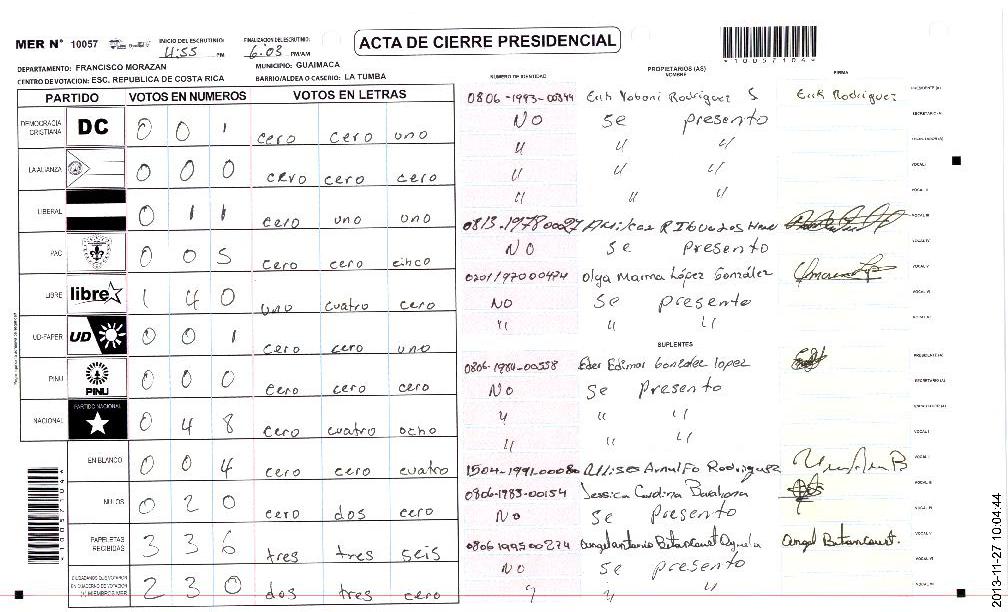 MER N° 10057 INICIO DEL ESCRUTINIO: 4:55 PM FINALIZACION DEL ESCRUTINIO: 6:03 PM/AM ACTA DE CIERRE PRESIDENCIAL
DEPARTAMENTO: FRANCISCO MORAZAN MUNICIPIO: GUAIMACA
CENTRO DE VOTACION: ESC. REPUBLICA DE COSTA RICA BARRIO/ALDEA O CASERIO: LA TUMBA
PARTIDO VOTOS EN NUMEROS VOTOS EN LETRAS
DEMOCRACIA CRISTIANA DC 0 0 1 cero cero uno
LA ALIANZA 0 0 0 cero cero cero
LIBERAL 0 1 1 cero uno uno
PAC 0 0 5 cero cero cinco
LIBRE libre 1 4 0 uno cuatro cero
UD-FAPER UD 0 0 1 cero cero uno
PINU PINU 0 0 0 cero cero cero
NACIONAL PARTIDO NACIONAL 0 4 8 cero cuatro ocho
EN BLANCO 0 0 4 cero cero cuatro
NULOS 0 2 0 cero dos cero
PAPELETAS RECIBIDAS 3 3 6 tres tres seis
CIUDADANOS QUE VOTARON EN CUADERNO DE VOTACION (+) MIEMBROS MER 2 3 0 dos tres cero
*10057104*
PROPIETARIOS (AS)
NUMERO DE IDENTIDAD NOMBRE FIRMA
0806-1993-00344 Erik Rodriguez S Erik Rodriguez PRESIDENTE (A)
NO se presento SECRETARIO (A)
" " "
" " " VOCAL I
" " " VOCAL II
VOCAL III
NO se presento VOCAL IV
0201197000474 Olga Marina López González VOCAL V
NO se presento VOCAL VI
" " "
SUPLENTES
0806-1984-00558 Eder Edimar Gonzalez lopez PRESIDENTE (A)
No Se Presento SECRETARIO (A)
" " "
" " " VOCAL I
1504-1991-00080 Ulises Arnulfo Rodriguez
0806-1983-00154 Jessica Carolina Barahona
No se presento
0806199500274 Betancourt Angel Betancourt.
NO se presento
" " "
*10057104*
2013-11-27 10:04:44